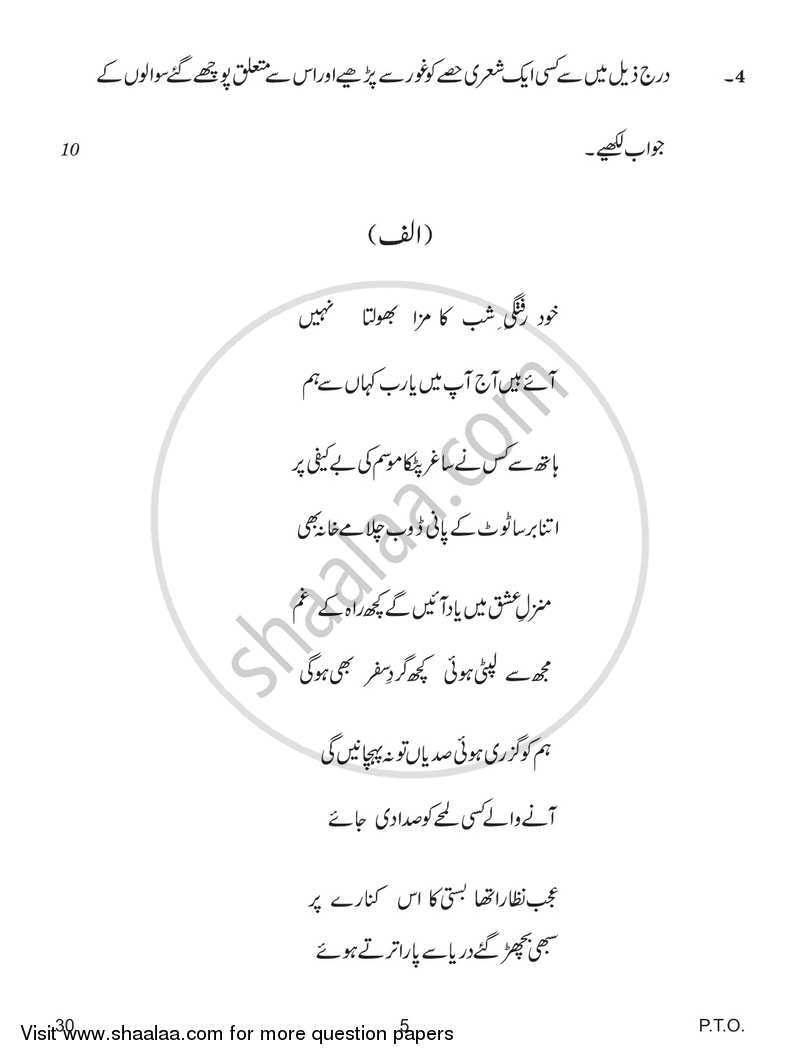 4۔ درج ذیل میں سے کسی ایک شعری حصے کو غور سے پڑھیے اور اس سے متعلق پوچھے گئے سوالوں کے
جواب لکھیے۔ 10
(الف)
خود رفتگیِ شب کا مزا بھولتا نہیں
آئے ہیں آج آپ میں یارب کہاں سے ہم
ہاتھ سے کس نے ساغر پٹکا موسم کی بے کیفی پر
اتنا برسا ٹوٹ کے پانی ڈوب چلا مے خانہ بھی
منزلِ عشق میں یاد آئیں گے کچھ راہ کے غم
مجھ سے لپٹی ہوئی کچھ گردِ سفر بھی ہوگی
ہم کو گزری ہوئی صدیاں تو نہ پہچانیں گی
آنے والے کسی لمحے کو صدا دی جائے
عجب نظارا تھا بستی کا اس کنارے پر
سبھی بچھڑ گئے دریا سے پار اترتے ہوئے
shaalaa.com
30 5 P.T.O.
Visit www.shaalaa.com for more question papers